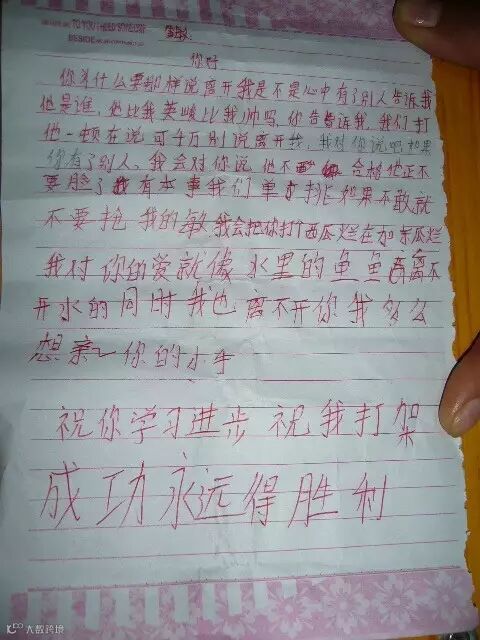 TO YOU I NEED SOMEONE
BESIDE
敏
你好
你为什么要那样说离开我是不是心中有了别人告诉我
他是谁，他比我英峻比我帅吗，你告告诉我，我们打
他一顿在说可千万别说离开我，我对你说吧如果
你有了别人，我会对你说他不 合格他正不
要脸了我有本事我们单打挑如果不敢就
不要抢我的敏我会把你打个西瓜烂在加东瓜烂
我对你的爱就像水里的鱼鱼离不
开水的同时我也离不开你我多么
想亲一你的小手
祝你学习进步祝我打架
成功永远得胜利
大数跨境